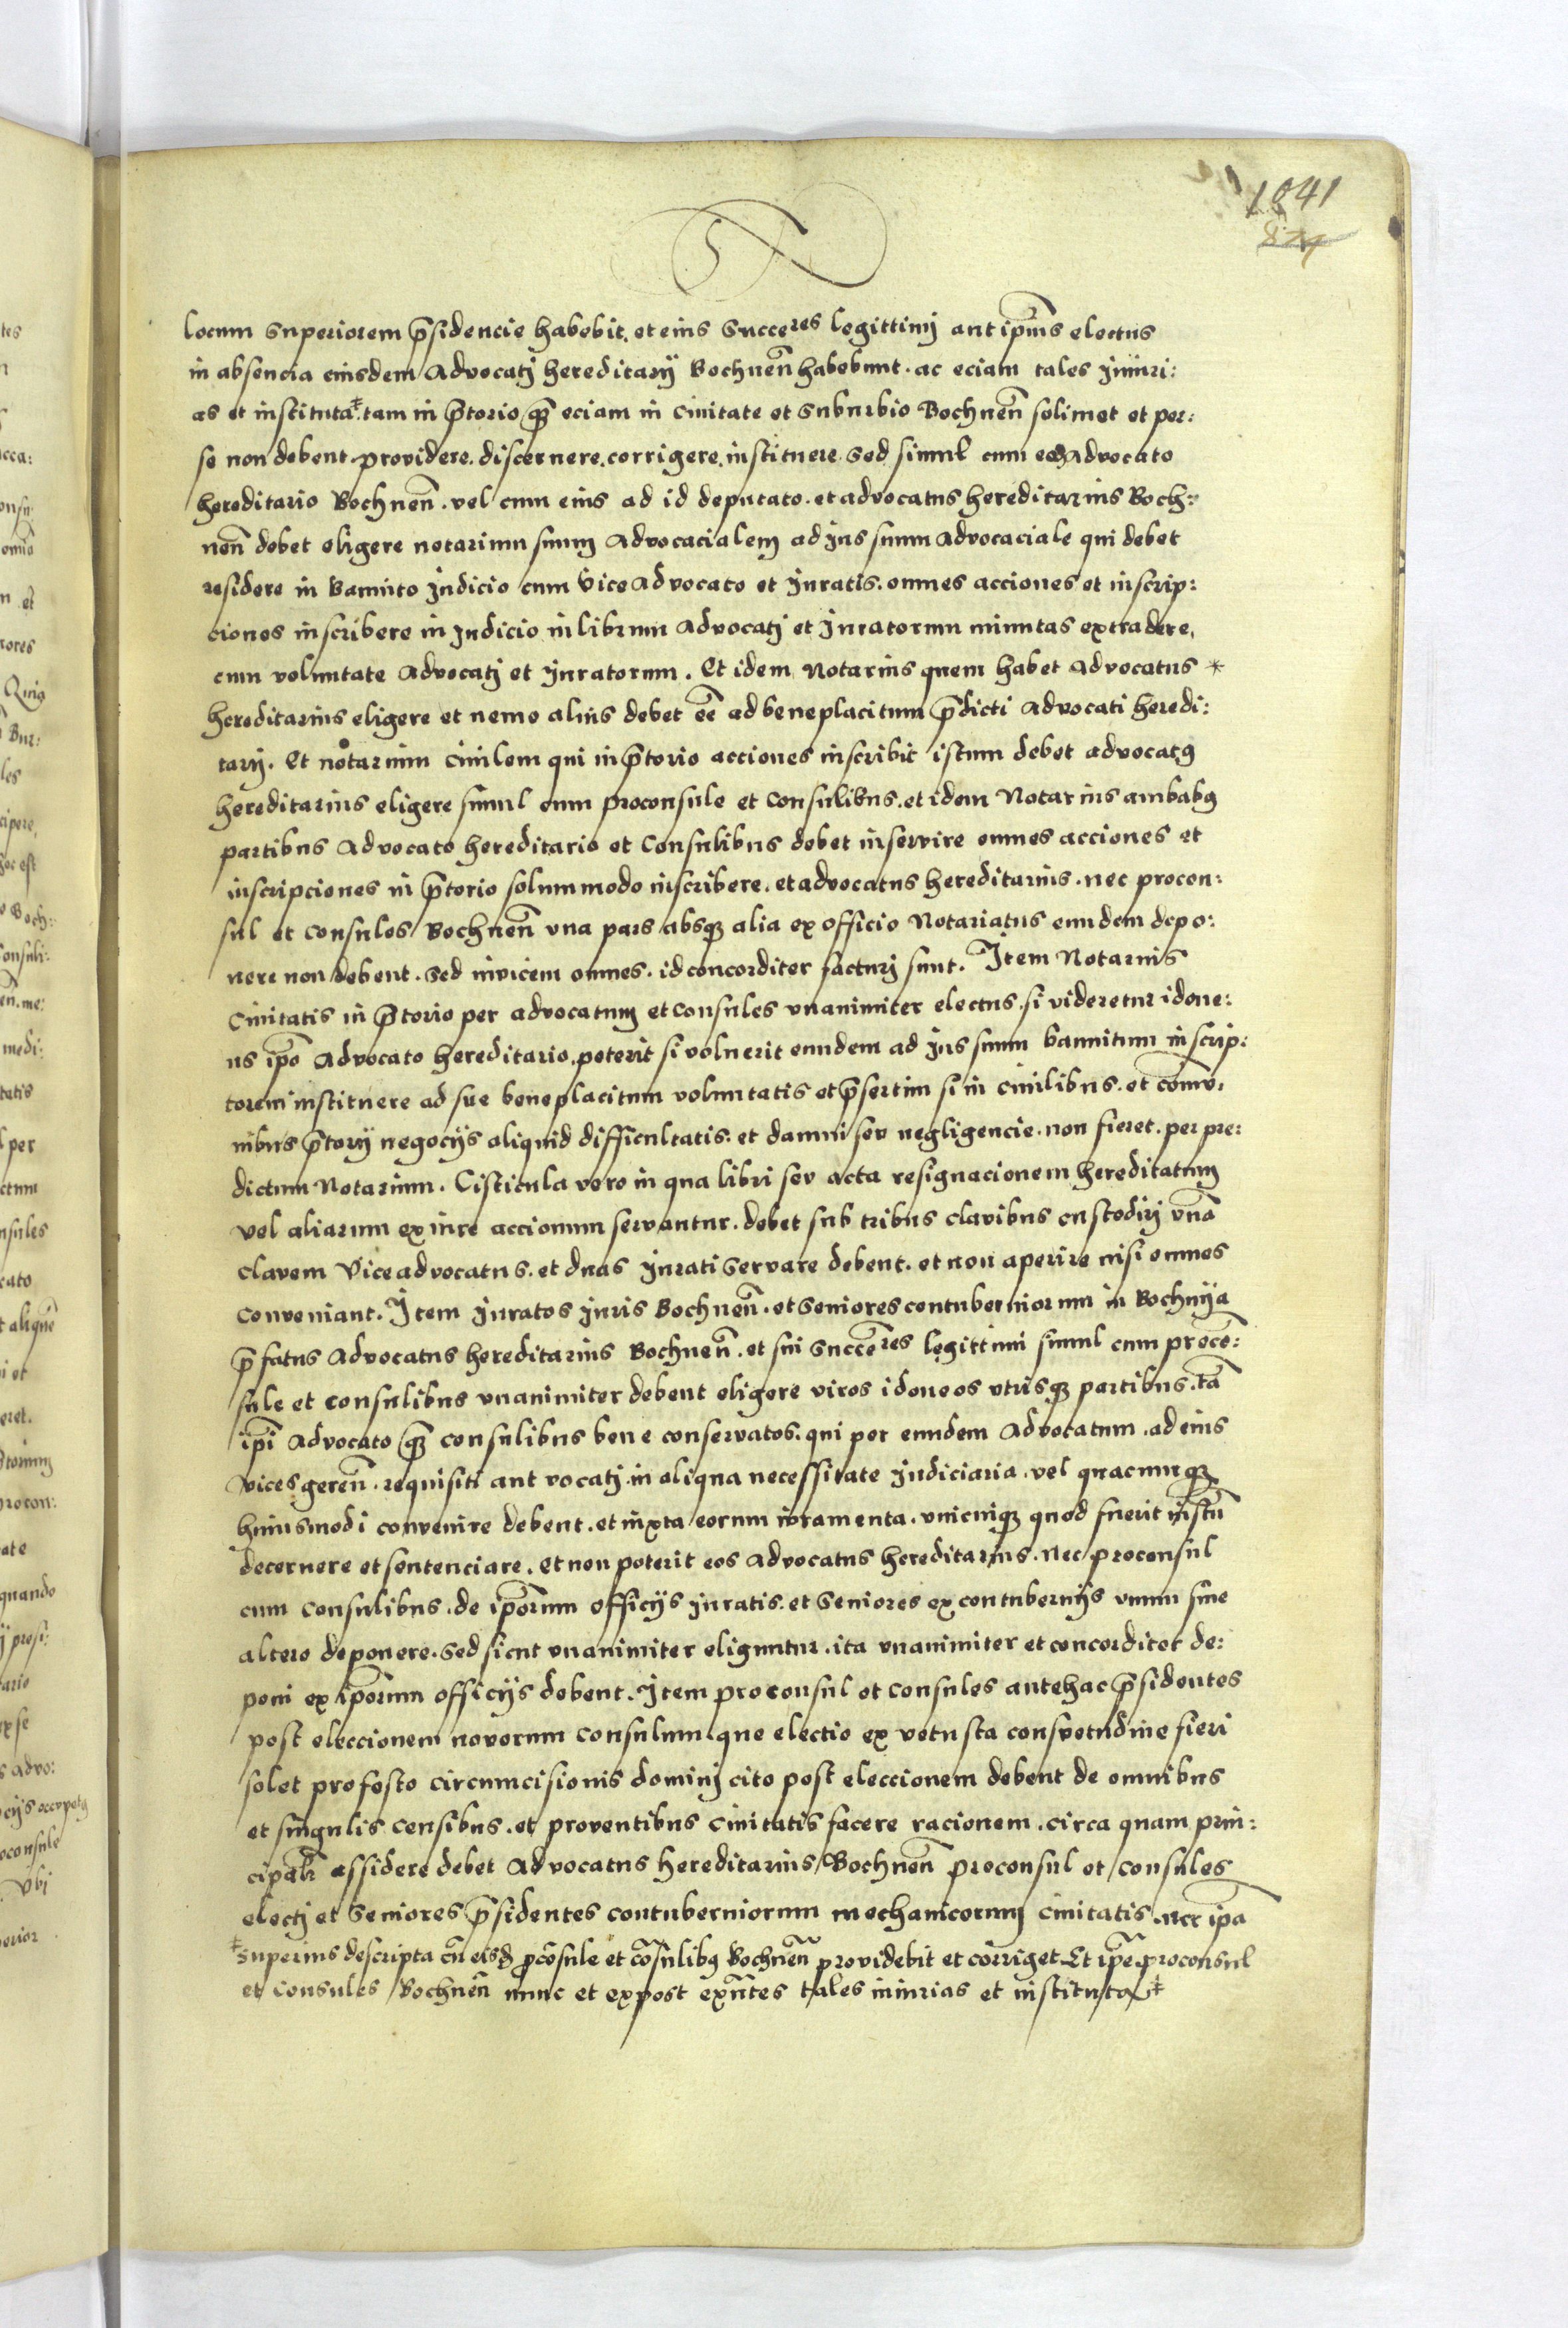 1041
829
locum superiorem p̄sidencie habebit. et eius Succeres legittimj aut ip̄ius electus
in absencia eiusdem Advocatj hereditarij Bochnen̄ habebunt. ac eciam tales iniuri:
as et instituta‡. tam in p̄torio q̄ȝ eciam in Ciuitate et Suburbio Bochnen̄ solimet et per:
se non debent providere. discernere. corrigere. instituere. Sed simul cum Advocato
hereditario Bochnen̄. vel cum eius ad id deputato. et advocatus hereditarius Boch:
nen̄ debet eligere notarium suum Advocacialem ad ius suum Advocaciale qui debet
residere in Bannito Judicio cum Vice Advocato et Juratis. omnes acciones et inscrip:
ciones inscribere in Judicio in librum Advocatj et Juratorum minutas extradere,
cum voluntate Advocatj et Juratorum. Et idem Notarius quem habet Advocatus *
hereditarius eligere et nemo alius debet ēē ad beneplacitum p̄dicti Advocati heredi:
tarij. Et notarium Ciuilem qui in p̄torio acciones inscribit istum debet advocatꝰ
hereditarius eligere simul cum proconsule et Consulibus. et idem Notarius ambabꝰ
partibus Advocato hereditario et Consulibus debet inservire omnes acciones et
inscripciones in p̄torio solummodo inscribere. et advocatus hereditarius. nec procon:
sul et consules Bochnen̄ vna pars absqȝ alia ex officio Notariatus eundem depo:
nere non debent. Sed invicem omnes. id concorditer facturj sunt. Item Notarius
Ciuitatis in p̄torio per advocatum et consules vnanimiter electus. si videretur idone:
us ip̄o Advocato hereditario, poterit si voluerit eundem ad ius suum bannitum inscrip:
torem instituere ad sue beneplacitum voluntatis et p̄sertim si in ciuilibus. et com̄v:
nibus p̄torij negocijs aliquid difficultatis. et damni sev negligencie. non fieret. per pre:
dictum Notarium. Cisticula vero in qua libri sev acta resignacionem hereditatum
vel aliarum ex iure accionum servantur. debet sub tribus clavibus custodirj vnā
clavem Viceadvocatus. et duas Jurati Servare debent. et non aperire nisi omnes
Conveniant. Item Juratos Juris Bochnen̄. et Seniores contuberniorum in Bochnija
p̄fatus Advocatus hereditarius Bochnen̄. et sui Succ̄eres legittimi simul cum procō:
sule et consulibus vnanimiter debent eligere viros idoneos vtrisqȝ partibus. tā
ip̄i Advocato q̄ȝ consulibus bene conservatos. qui per eundem Advocatum. ad eius
vices geren̄. requisiti aut vocatj. in aliqua necessitate Judiciaria. vel quacunqȝ
huiusmodi convenire debent. et iuxta eorum ivramenta. vnicuiqȝ quod fuerit iustū
decernere et sentenciare. et non poterit eos Advocatus hereditarius. Nec proconsul
cum consulibus. de ip̄orum officijs Juratis. et Seniores ex contubernijs vnum sine
altero deponere. Sed sicut vnanimiter eliguntur. ita vnanimiter et concorditer de:
poni ex ip̄orum officijs debent. Item proconsul et consules antehac p̄sidentes
post eleccionem novorum consulum que electio ex vetusta consvetudine fieri
solet pro festo circumcisionis dominj cito post eleccionem debent de omnibus
et singulis censibus. et proventibus Ciuitatis facere racionem. circa quam prin:
cipalr̄ assidere debet Advocatus hereditarius Bochnen̄ proconsul et consules
electj et Seniores p̄sidentes contuberniorum mechanicorum Ciuitatis. nec ip̄a
‡ superius descripta cū eisd proc̄osule et cōsulibꝰ Bochnen̄ providebit et corriget. Et ip̄e proconsul
et consules Bochnen̄ nunc et expost exn̄tes tales iniurias et instituta ‡